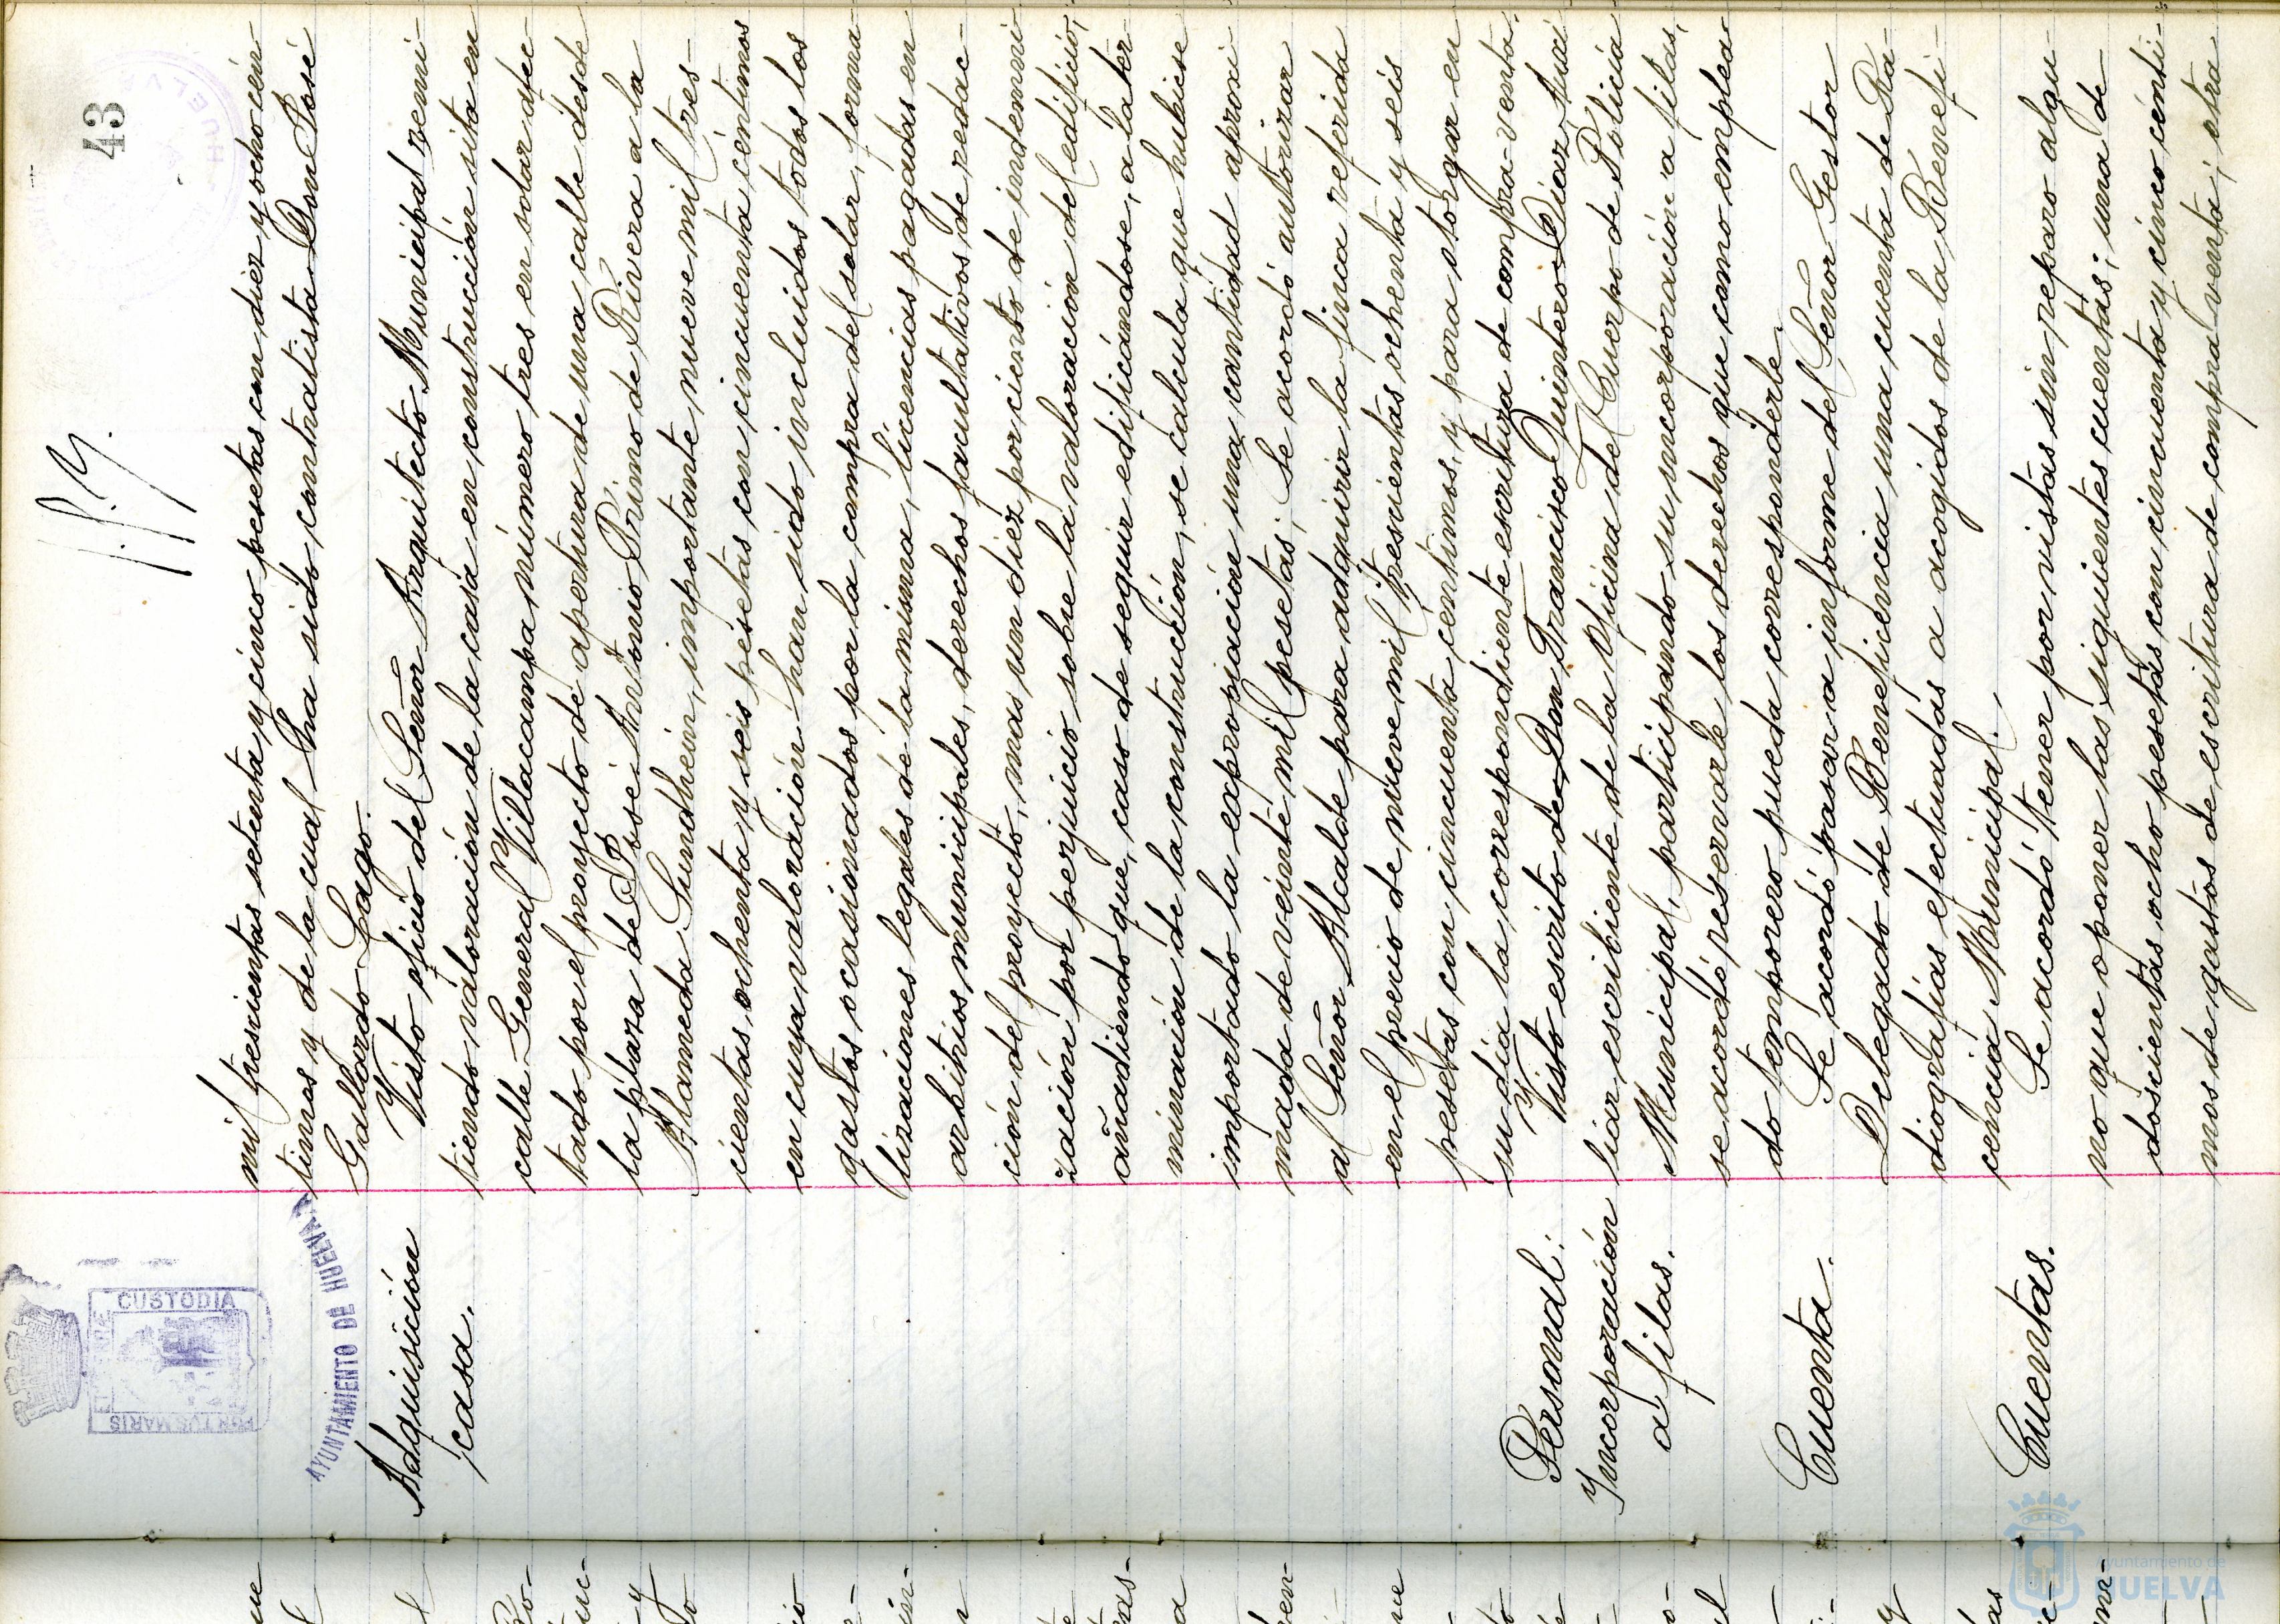 43
mil trescientas setenta y cinco pesetas con diez y ocho cén-
timos y de la cual ha sido contratista Don José
Gallardo Lago.
Adquisición
casa.
Visto oficio del Señor Arquitecto Municipal remi-
tiendo valoración de la casa en construcción sita en
calle General Villacampa número tres en solar afec-
tado por el proyecto de apertura de una calle desde
la plaza de José Antonio Primo de Rivera a la
Alameda Sundheim, importante nueve mil tres-
cientas ochenta y seis pesetas con cincuenta céntimos
en cuya valoración han sido incluidos todos los
gastos ocasionados por la compra del solar, forma
lizaciones legales de la misma, licencias pagadas en
arbitrios municipales, derechos facultativos de redac-
ción del proyecto, mas un diez por ciento de indemni
zación por perjuicio sobre la valoración del edificio,
añadiendo que, caso de seguir edificándose, a la ter
minación de la construcción, se calcula que hubiese
importado la expropiación una cantidad aproxi
mada de veinte mil pesetas; Se acordó autorizar
al Señor Alcalde para adquirir la finca referida
en el precio de nueve mil trescientas ochenta y seis
pesetas con cincuenta céntimos, y para otorgar en
su día la correspondiente escritura de compra-venta.
Personal:
Yncorporación
a filas.
Visto escrito de Don Francisco Quintero Díaz, Auxi
liar escribiente de la Oficina del Cuerpo de Policía
Municipal, participando su incorporación a filas,
se acordó reservarle los derechos que como emplea-
do temporero pueda corresponderle.
Cuenta.
Se acordó pasar a informe del Señor Gestor
Delegado de Beneficencia una cuenta de Ra-
diografías efectuadas a acogidos de la Benefi-
cencia Municipal.
Cuentas.
Se acordó tener por vistas sin reparo algu-
no que oponer las siguientes cuentas; una de
doscientas ocho pesetas con cincuenta y cinco cénti-
mos de gastos de escritura de compra venta; otra
AYUNTAMIENTO DE HUELVA
CUSTODIA
PORTUS MARIS
Ayuntamiento de
HUELVA